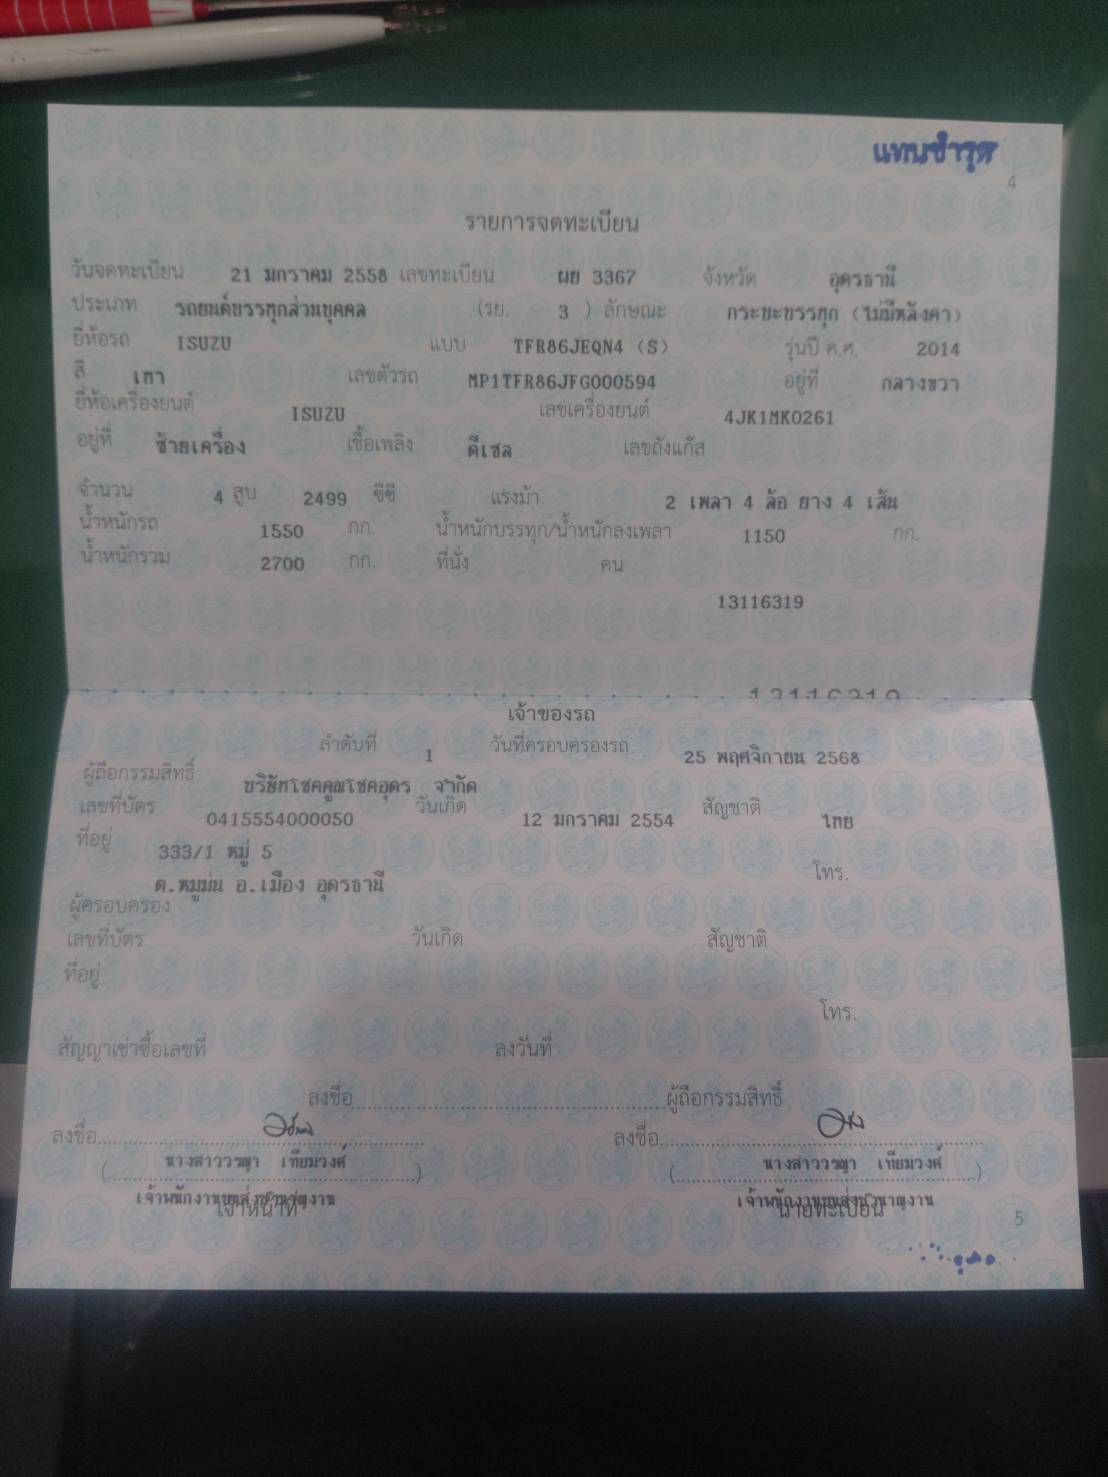 แทนชำรุด
4
รายการจดทะเบียน
วันจดทะเบียน 21 มกราคม 2558 เลขทะเบียน ผย 3367 จังหวัด อุดรธานี
ประเภท รถยนต์บรรทุกส่วนบุคคล (รย. 3 ) ลักษณะ กระบะบรรทุก (ไม่มีหลังคา)
ยี่ห้อรถ ISUZU แบบ TFR86JEQN4 (S) รุ่นปี ค.ศ. 2014
สี เทา เลขตัวรถ MP1TFR86JFG000594 อยู่ที่ กลางขวา
ยี่ห้อเครื่องยนต์ ISUZU เลขเครื่องยนต์ 4JK1MK0261
อยู่ที่ ซ้ายเครื่อง เชื้อเพลิง ดีเซล เลขถังแก๊ส
จำนวน 4 สูบ 2499 ซีซี แรงม้า 2 เพลา 4 ล้อ ยาง 4 เส้น
น้ำหนักรถ 1550 กก. น้ำหนักบรรทุก/น้ำหนักลงเพลา 1150 กก.
น้ำหนักรวม 2700 กก. ที่นั่ง คน
13116319
13116319
เจ้าของรถ
ลำดับที่ 1 วันที่ครอบครองรถ 25 พฤศจิกายน 2568
ผู้ถือกรรมสิทธิ์ บริษัทโชคคูณโชคอุดร จำกัด
เลขที่บัตร 0415554000050 วันเกิด 12 มกราคม 2554 สัญชาติ ไทย
ที่อยู่ 333/1 หมู่ 5
ต.หมูม่น อ.เมือง อุดรธานี โทร.
ผู้ครอบครอง
เลขที่บัตร วันเกิด สัญชาติ
ที่อยู่
โทร.
สัญญาเช่าซื้อเลขที่ ลงวันที่
ลงชื่อ ผู้ถือกรรมสิทธิ์
ลงชื่อ ลงชื่อ
(นางสาววรญา เทียมวงศ์) (นางสาววรญา เทียมวงศ์)
เจ้าพนักงานขนส่งชำนาญงาน เจ้าพนักงานขนส่งชำนาญงาน
เจ้าหน้าที่ นายทะเบียน
5